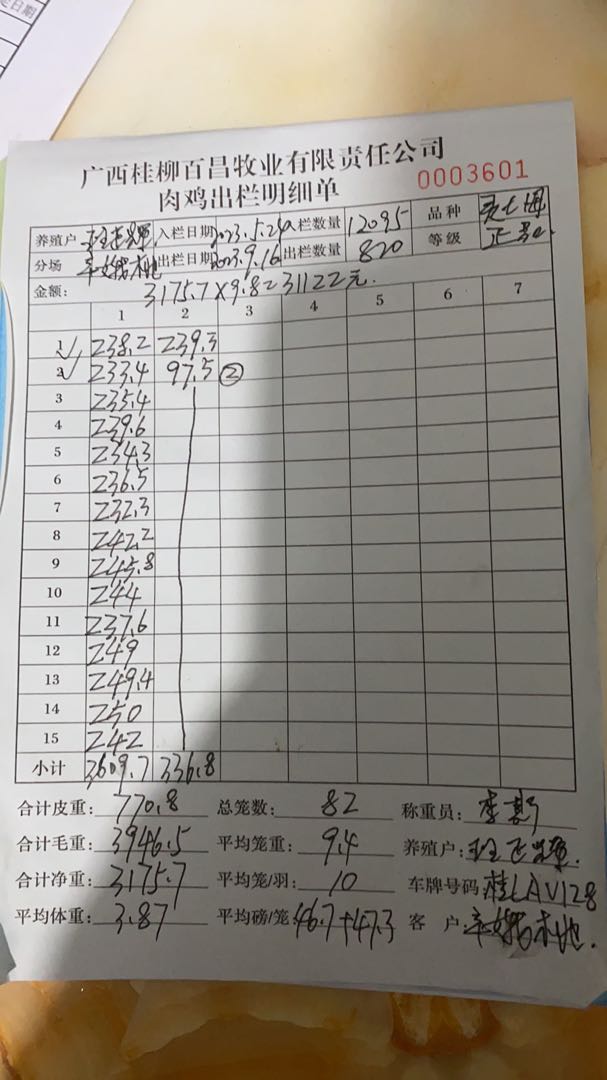 定日期
广西桂柳百昌牧业有限责任公司
肉鸡出栏明细单 0003601
养殖户 班正 入栏日期 2023.5.29 入栏数量 12095 品种
分场 出栏日期 2023.9.16 出栏数量 820 等级 正品
金额: 3175.7×9.8=31122元.
1 2 3 4 5 6 7
1 238.2 239.3
2 233.4 97.5 ②
3 235.4
4 239.6
5 234.3
6 236.5
7 232.3
8 242.2
9 245.8
10 244
11 237.6
12 249
13 249.4
14 250
15 242
小计 3609.7 336.8
合计皮重: 770.8 总笼数: 82 称重员: 李
合计毛重: 3946.5 平均笼重: 9.4 养殖户: 班正
合计净重: 3175.7 平均笼/羽: 10 车牌号码: 桂LAV128
平均体重: 3.87 平均磅/笼: 46.7+47.3 客户: